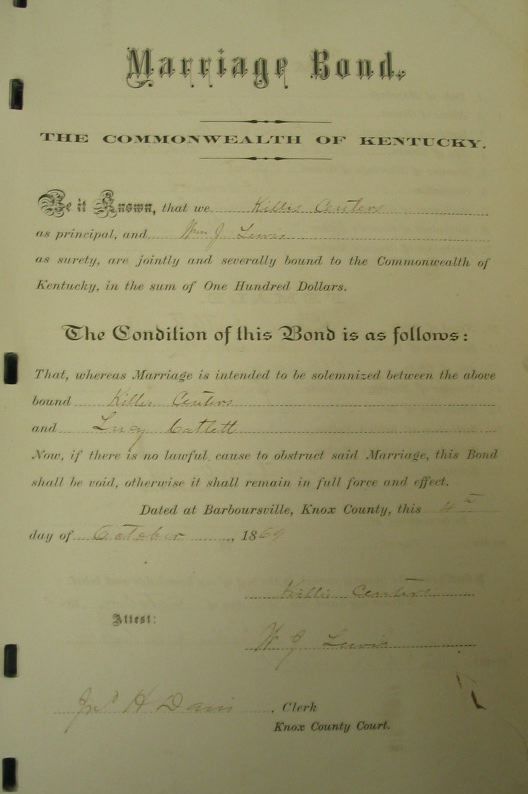 Marriage Bond.
THE COMMONWEALTH OF KENTUCKY.
Be it Known, that we Killis Centers
as principal, and Wm J. Lewis
as surety, are jointly and severally bound to the Commonwealth of
Kentucky, in the sum of One Hundred Dollars.
The Condition of this Bond is as follows:
That, whereas Marriage is intended to be solemnized between the above
bound Killis Centers
and Lucy Catlett
Now, if there is no lawful cause to obstruct said Marriage, this Bond
shall be void, otherwise it shall remain in full force and effect.
Dated at Barboursville, Knox County, this 4th
day of October, 1869
Killis Centers
Attest:
W J Lewis
H Davis, Clerk
Knox County Court.